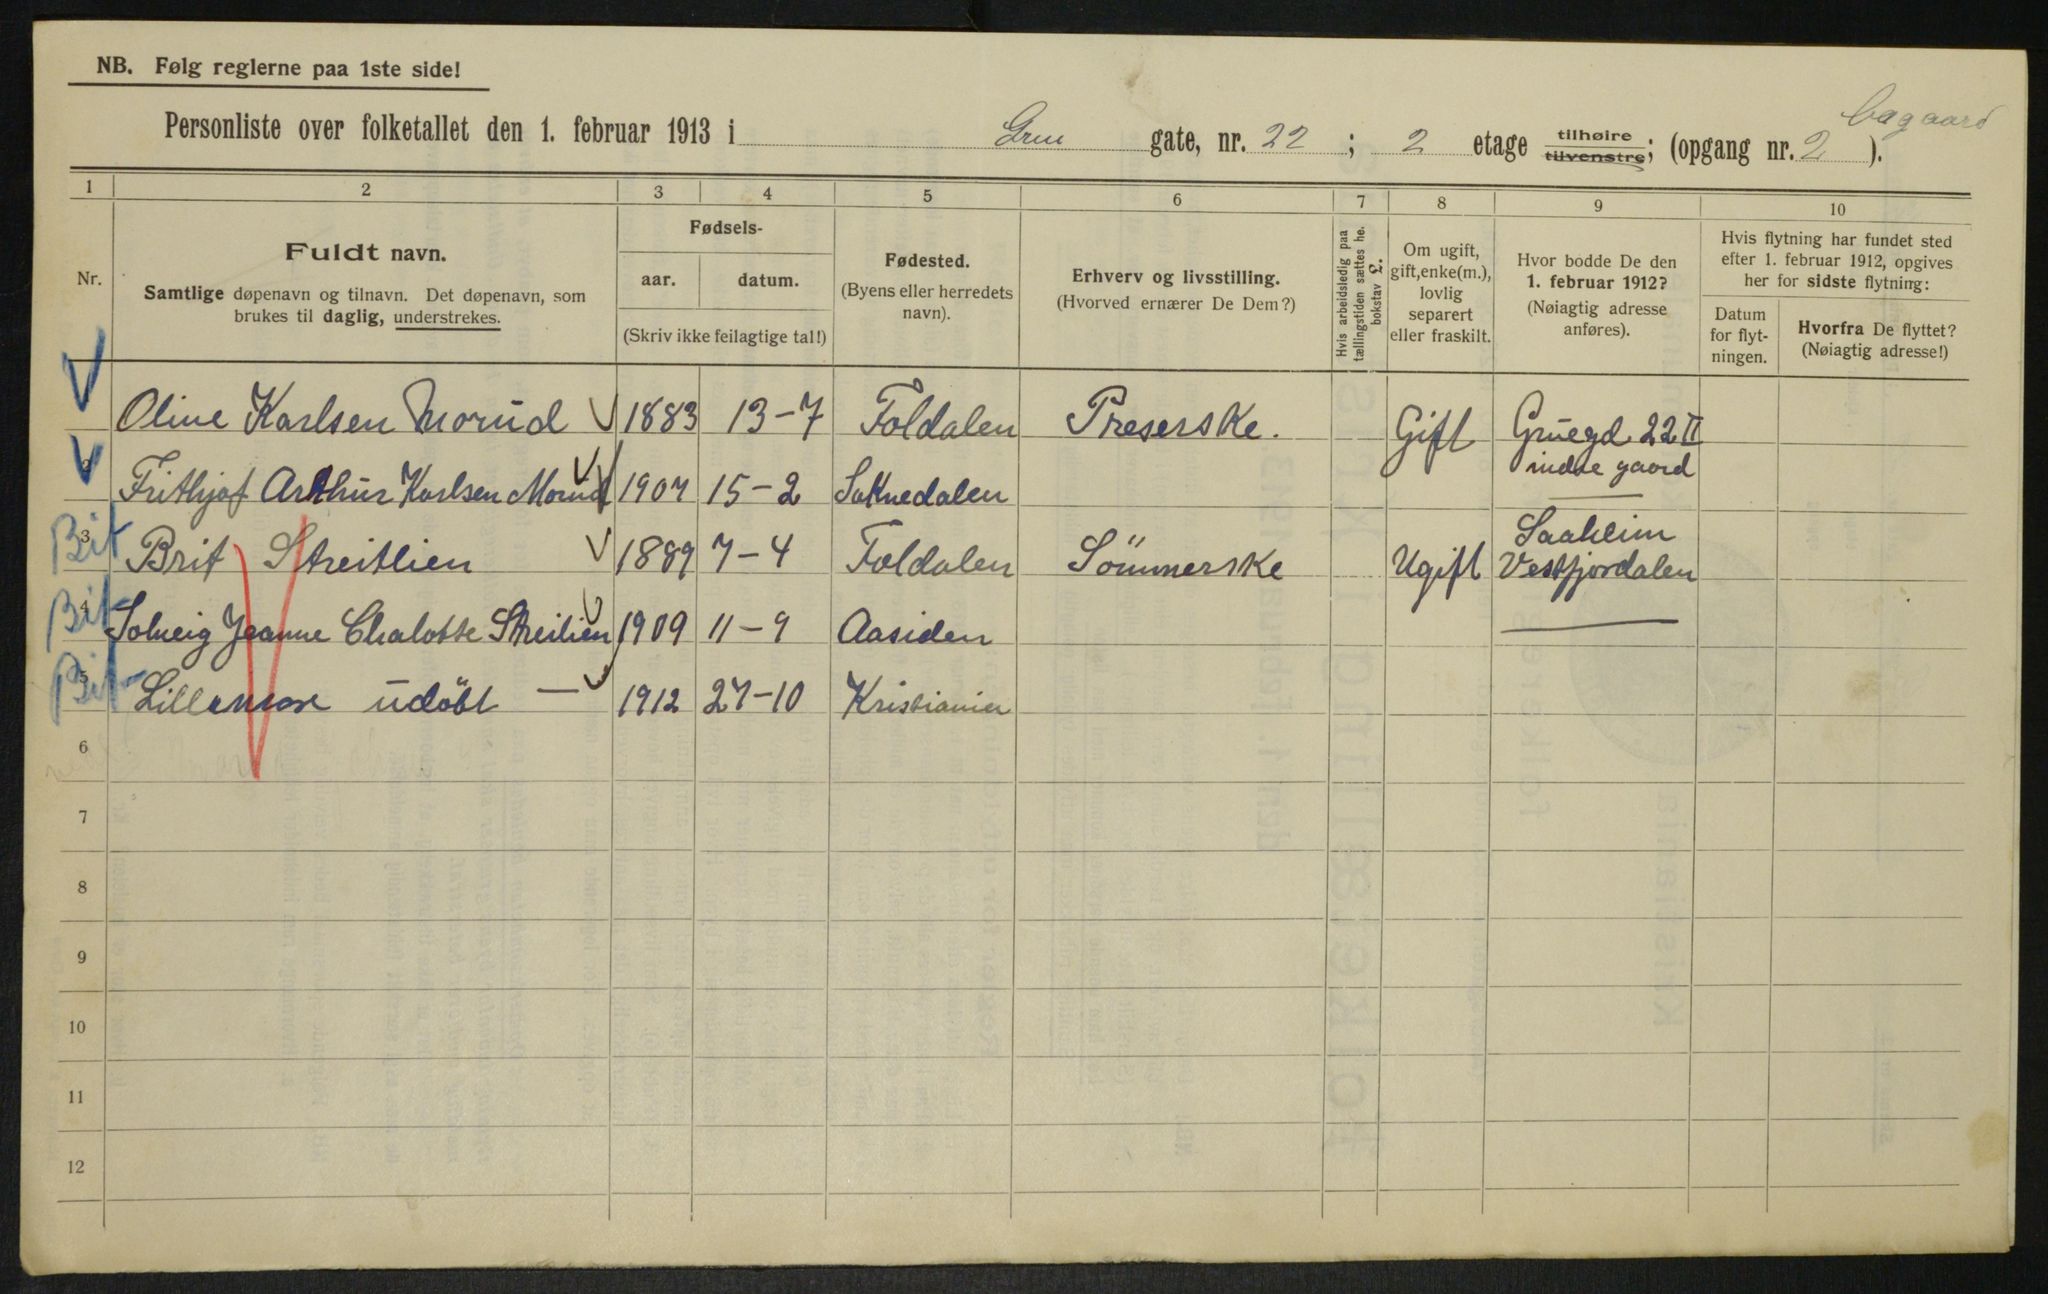 NB. Følg reglerne paa 1ste side!
Bagaard
Personliste over folketallet den 1. februar 1913 i Grue gate, nr. 22 ; 2 etage tilhøire tilvenstre; (opgang nr. 2 ).
1 2 3 4 5 6 7 8 9 10
Nr.
Fuldt navn.
Samtlige døpenavn og tilnavn. Det døpenavn, som
brukes til daglig, understrekes.
Fødsels-
aar. datum.
(Skriv ikke feilagtige tal!)
Fødested.
(Byens eller herredets
navn).
Erhverv og livsstilling.
(Hvorved ernærer De Dem?)
Hvis arbeidsledig paa
tællingstiden sættes he.
bokstav L.
Om ugift,
gift, enke(m.),
lovlig
separert
eller fraskilt.
Hvor bodde De den
1. februar 1912?
(Nøiagtig adresse
anføres).
Hvis flytning har fundet sted
efter 1. februar 1912, opgives
her for sidste flytning:
Datum
for flyt-
ningen.
Hvorfra De flyttet?
(Nøiagtig adresse!)
Oline Karlsen Morud 1883 13-7 Foldalen Preserske. Gift Gruegd 22 II
indre gaard
2 Frithjof Arthur Karlsen Morud 1907 15-2 Soknedalen
Bit 3 Brit Streitlien 1889 7-4 Foldalen Sömmerske Ugift Saaheim
Vestfjordalen
Bit 4 Solveig Jeanne Chalotte Streitlien 1909 11-9 Aasiden
Bit 5 Lillemor udöbt — 1912 27-10 Kristiania
6
7
8
9
10
11
12